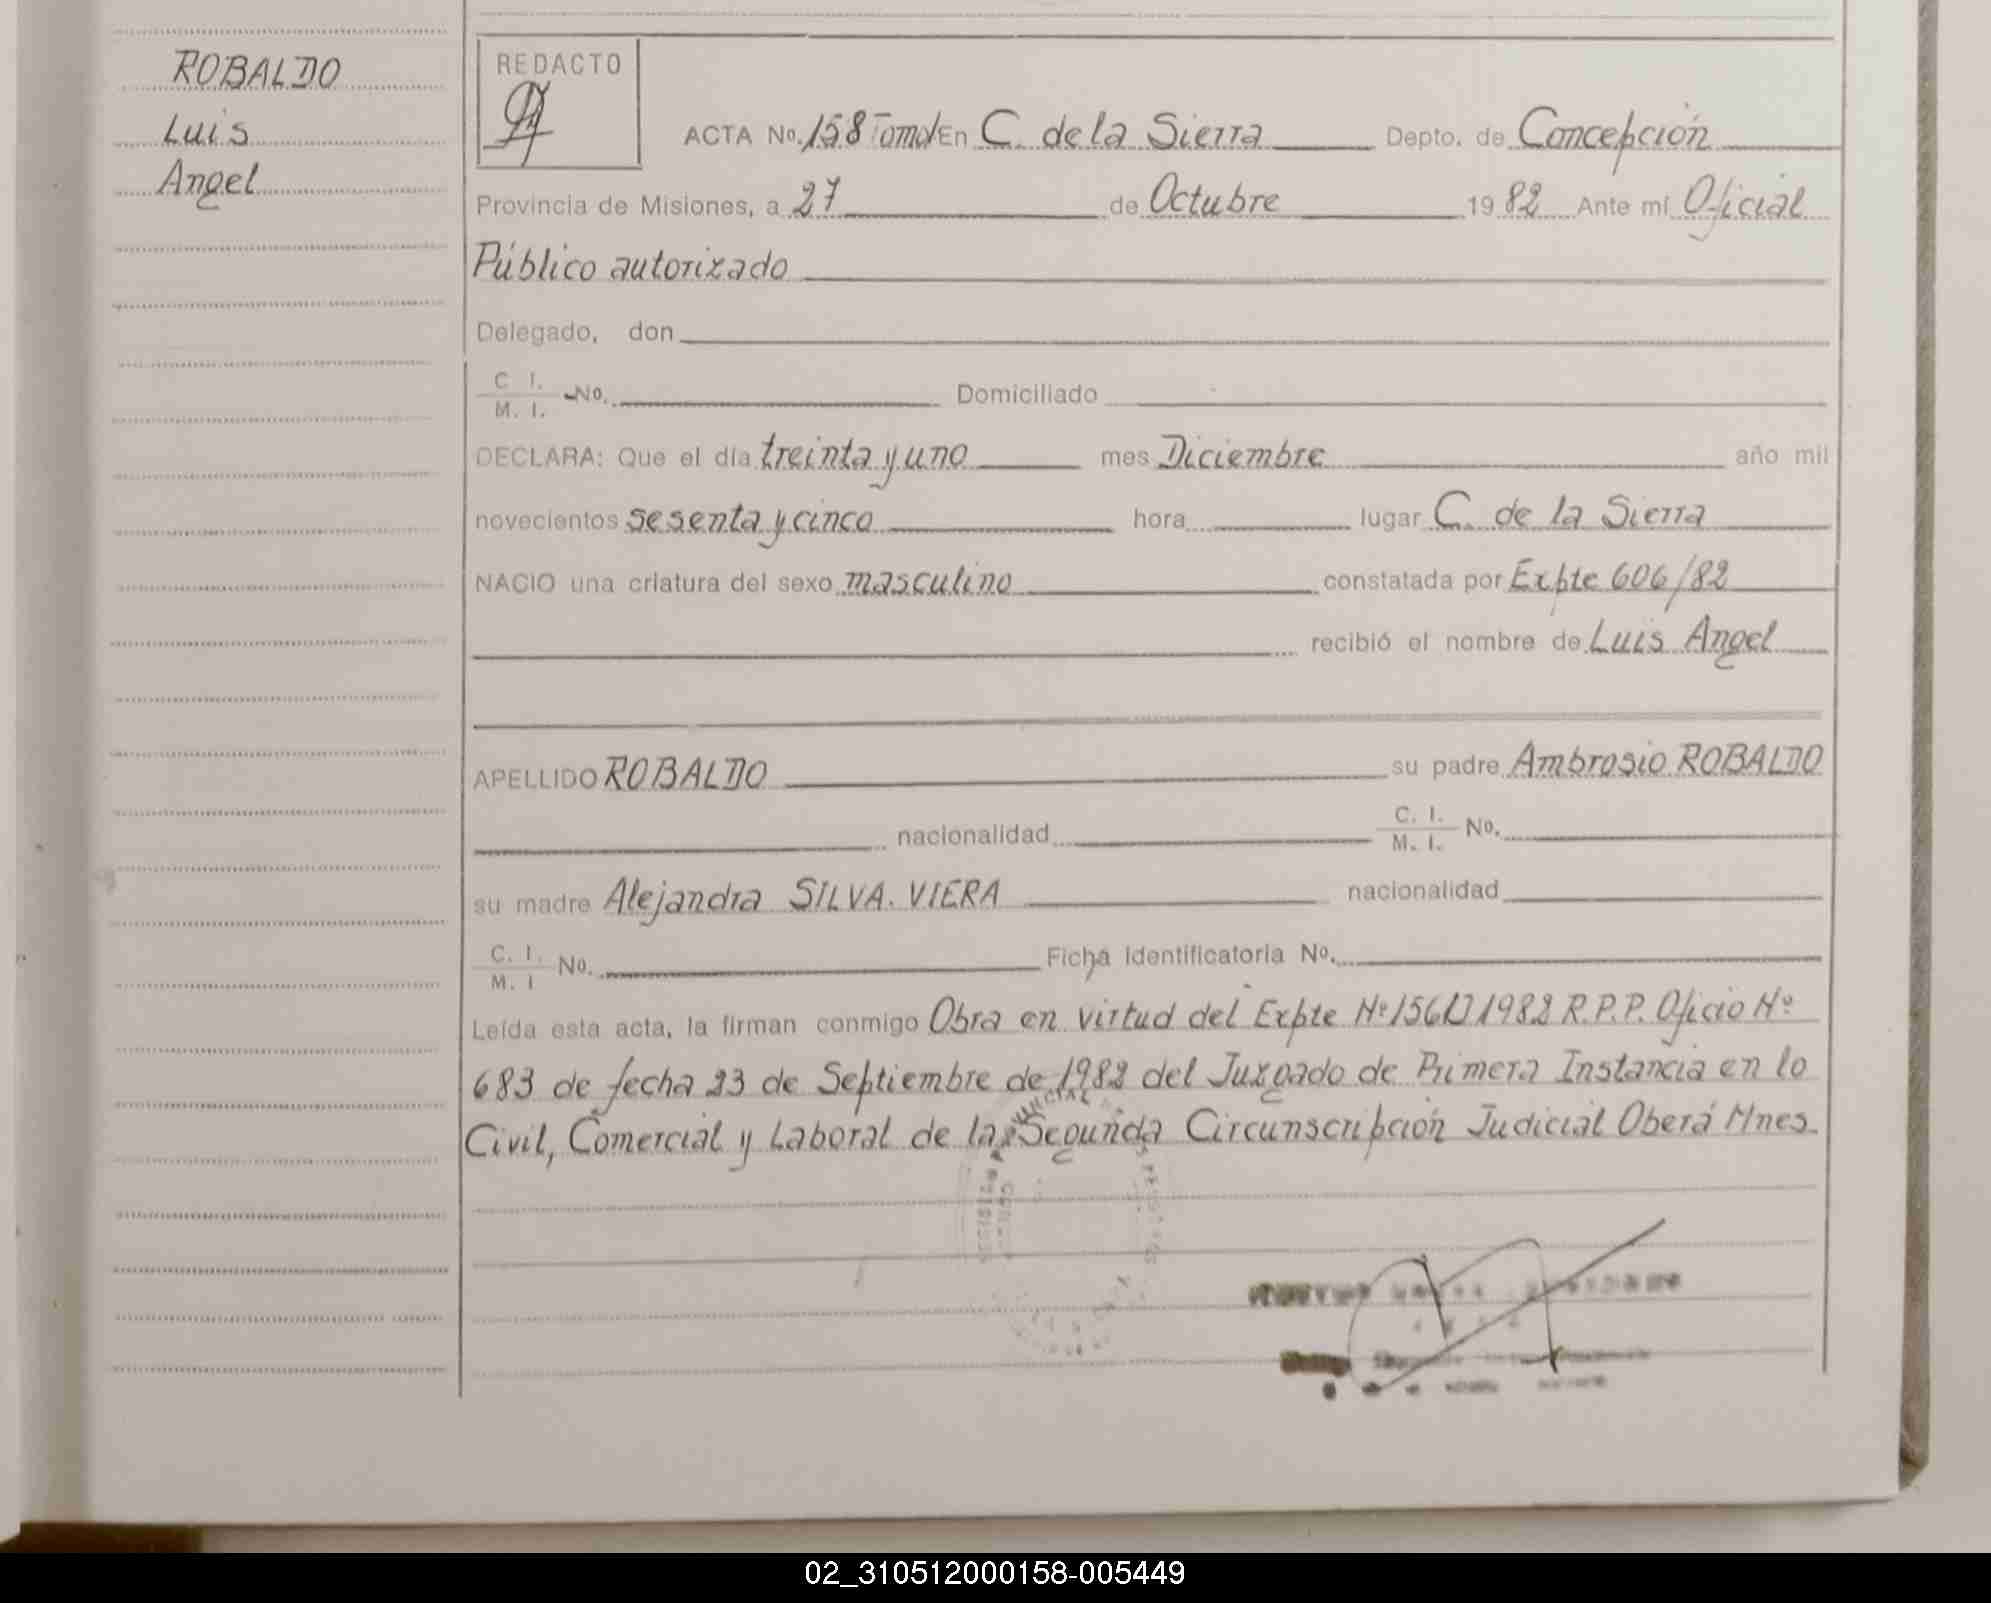 ROBALDO
Luis
Angel
REDACTO
ACTA No. 158 Tomo I En C. de la Sierra Depto. de Concepción
Provincia de Misiones, a 27 de Octubre 1982 Ante mí Oficial
Público autorizado
Delegado, don
C. I.
M. I. No. Domiciliado
DECLARA: Que el día treinta y uno mes Diciembre año mil
novecientos sesenta y cinco hora lugar C. de la Sierra
NACIO una criatura del sexo masculino constatada por Expte 606/82
recibió el nombre de Luis Angel
APELLIDO ROBALDO su padre Ambrosio ROBALDO
nacionalidad C. I.
M. I. No.
su madre Alejandra SILVA. VIERA nacionalidad
C. I.
M. I No. Ficha Identificatoria No.
Leída esta acta, la firman conmigo Obra en virtud del Expte Nº 1982 R.P.P. Oficio Nº
683 de fecha 23 de Septiembre de 1982 del Juzgado de Primera Instancia en lo
Civil, Comercial y Laboral de la Segunda Circunscripción Judicial Oberá Mnes.
02_310512000158-005449